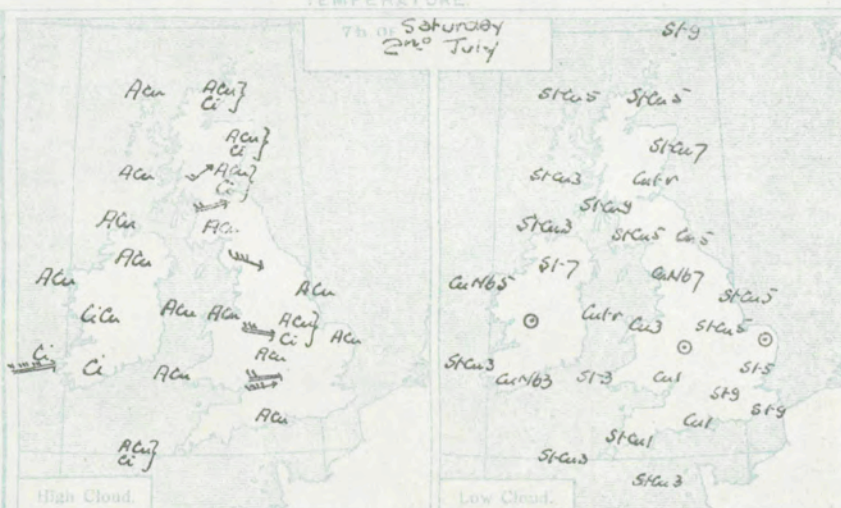 TEMPERATURE.
7h OF Saturday
2nd July
ACu
ACu }
Ci }
ACu }
Ci }
ACu
ACu }
Ci }
ACu
ACu
ACu
ACu
ACu
CiCu
ACu
ACu
ACu }
Ci }
ACu
Ci
Ci
ACu
ACu
ACu
ACu }
Ci }
High Cloud.
St9
StCu5
StCu5
StCu7
StCu3
Cutr
StCu9
StCu3
StCu5
Cu5
St7
CuNb5
CuNb7
StCu5
Cutr
Cu3
StCu5
StCu3
CuNb3
St3
Cu1
St5
St9
St9
Cu1
StCu1
StCu3
StCu3
Low Cloud.